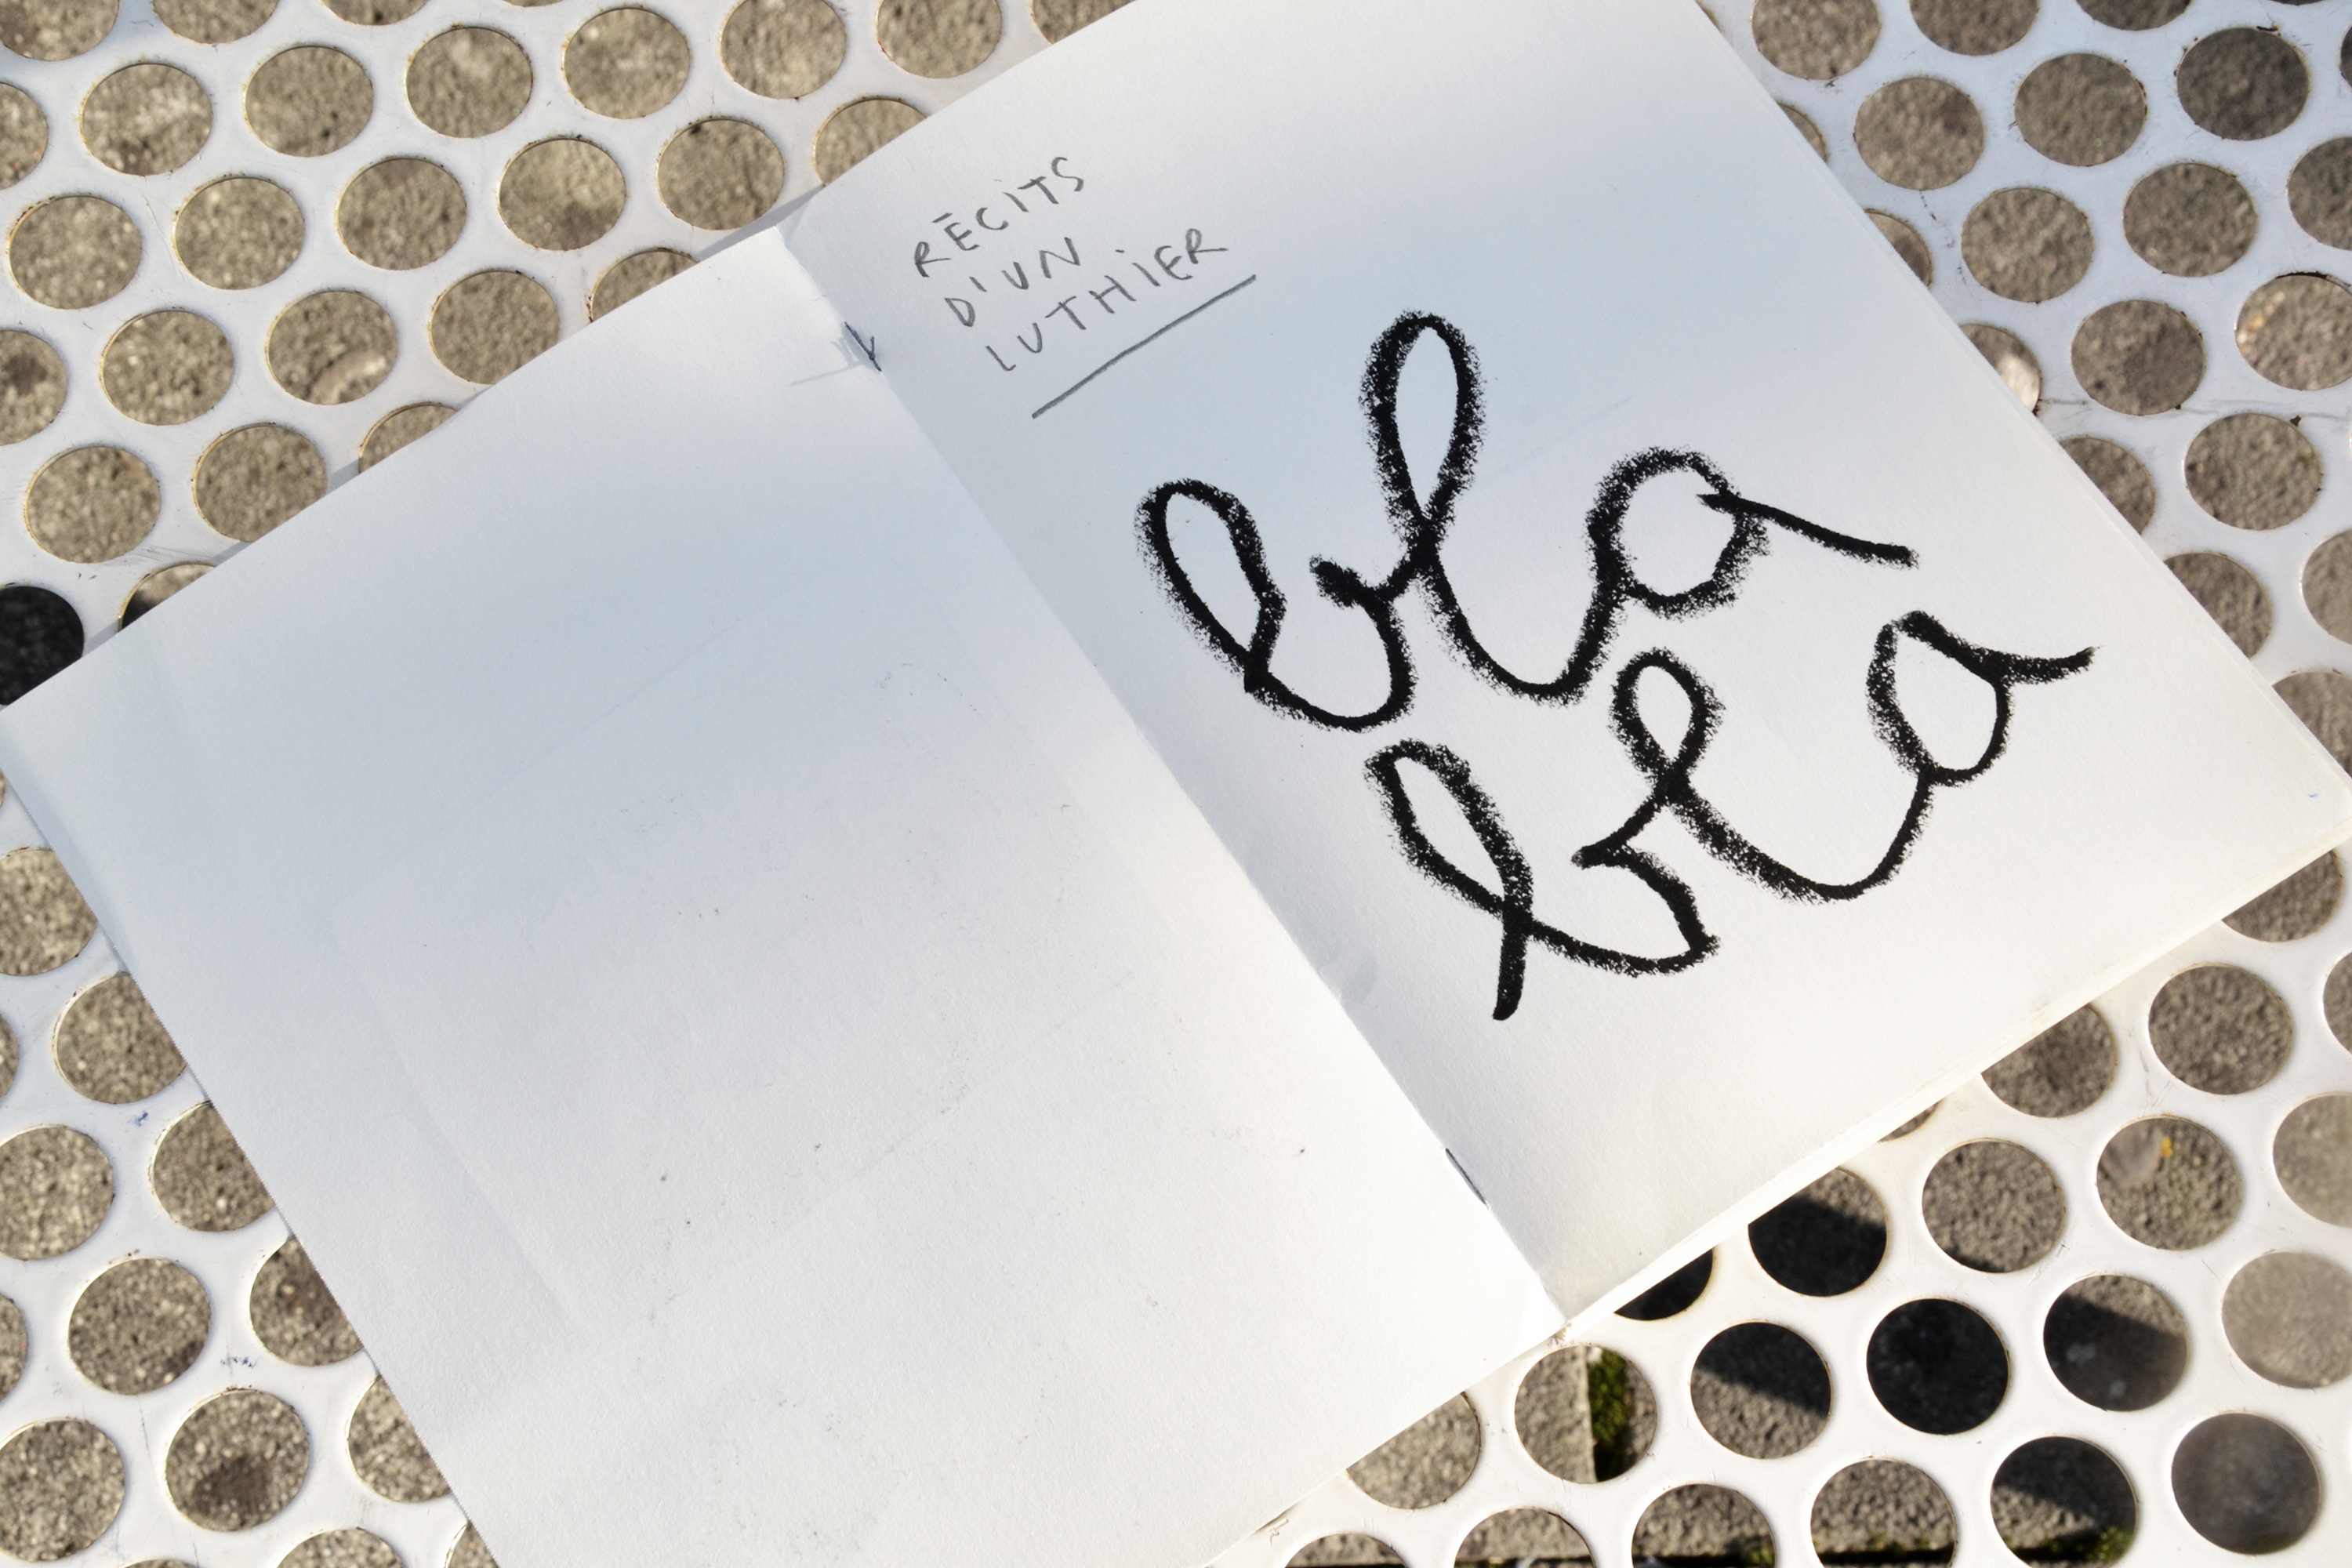 RÉCITS
D'UN
LUTHIER
bla
bla